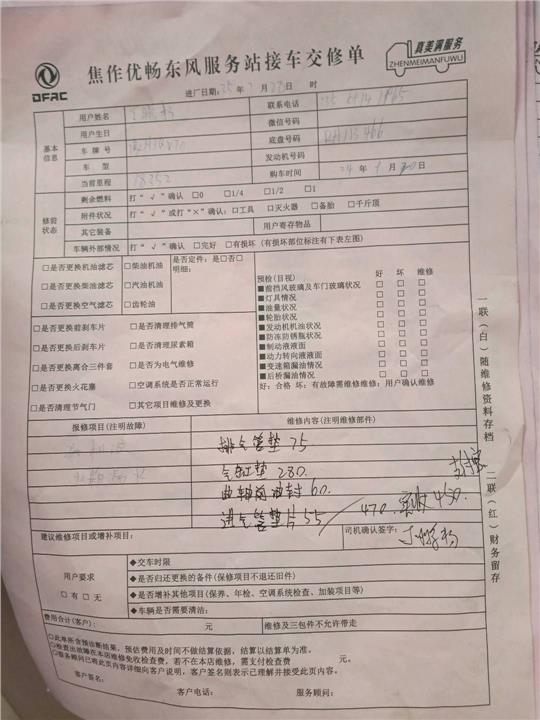 DFAC
焦作优畅东风服务站接车交修单
真美满服务
ZHENMEIMANFUWU
进厂日期: 25 年 月 日 时
用户姓名
联系电话
用户生日
微信号码
基本信息
车牌号
底盘号码
车型
发动机号码
当前里程 18252
购车时间 24 年 9 月 20 日
修前状态
剩余燃料 打“√”确认 □0 □1/4 □1/2 □1
附件状况 打“√”或打“×”确认: □工具 □灭火器 □备胎 □千斤顶
其它装备
用户寄存物品
车辆外部情况 打“√”确认 □完好 □有损坏 (有损坏部位标注有下表左图)
□是否更换机油滤芯 □柴油机油
□是否更换柴油滤芯 □汽油机油
□是否更换空气滤芯 □齿轮油
是否定件: □是□否□
明细:
预检(目视) 好 坏 维修
■前挡风玻璃及车门玻璃状况 □ □ □
■灯具情况 □ □ □
■油量状况 □ □ □
■轮胎状况 □ □ □
■发动机机油状况 □ □ □
■防冻防锈瓶状况 □ □ □
■制动液液面 □ □ □
■动力转向液液面 □ □ □
■变速箱漏油情况 □ □ □
■后桥漏油情况 □ □ □
好: 合格 坏: 有故障需维修维修: 用户确认维修
□是否更换前刹车片 □是否清理排气筒
□是否更换后刹车片 □是否清理尿素箱
□是否更换离合三件套 □是否为电气维修
□是否更换火花塞 □空调系统是否正常运行
□是否清理节气门 □其它项目维修及更换
报修项目(注明故障)
维修内容(注明维修部件)
排气管垫 75
气缸垫 280.
曲轴前油封 60.
进气管垫片 55 / 470. 实收 450
建议维修项目或增补项目:
司机确认签字:
用户要求
□有 □无
◆交车时限
◆是否归还更换的备件(保修项目不退还旧件)
◆是否增补其他项目(保养、年检、空调系统检查、加装项目等)
◆车辆是否需要清洁:
费用合计(客户): 元
维修及三包件不允许带走
○此单所含预诊断结果, 预估费用及时间不做结算依据, 结算以结算单为准。
○检查出故障在本店维修免收检查费, 若不在本店维修, 需支付检查费 元。
○服务顾问已将此页内容详细向客户说明, 客户签名则表示已理解并接受此页内容。
客户签名:
客户电话:
服务顾问:
一联(白)随维修资料存档
二联(红)财务留存